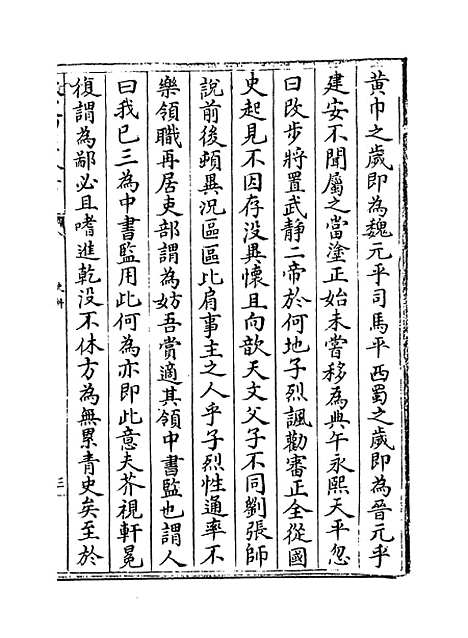 黄巾之歲即為魏元乎司馬平西蜀之歲即為晉元乎
建安不聞屬之當塗正始未嘗移為典午永熙天平忽
曰改步將置武靜二帝於何地子烈諷勸審正全從國
史起見不因存没異懷且向歆天文父子不同劉張師
說前後頓異況區區比肩事主之人乎子烈性通率不
樂領職再居吏部謂為妨吾賞適其領中書監也謂人
曰我已三為中書監用此何為亦即此意夫芥視軒冕
復謂為鄙必且嗜進乾没不休方為無累青史矣至於
史糾
三